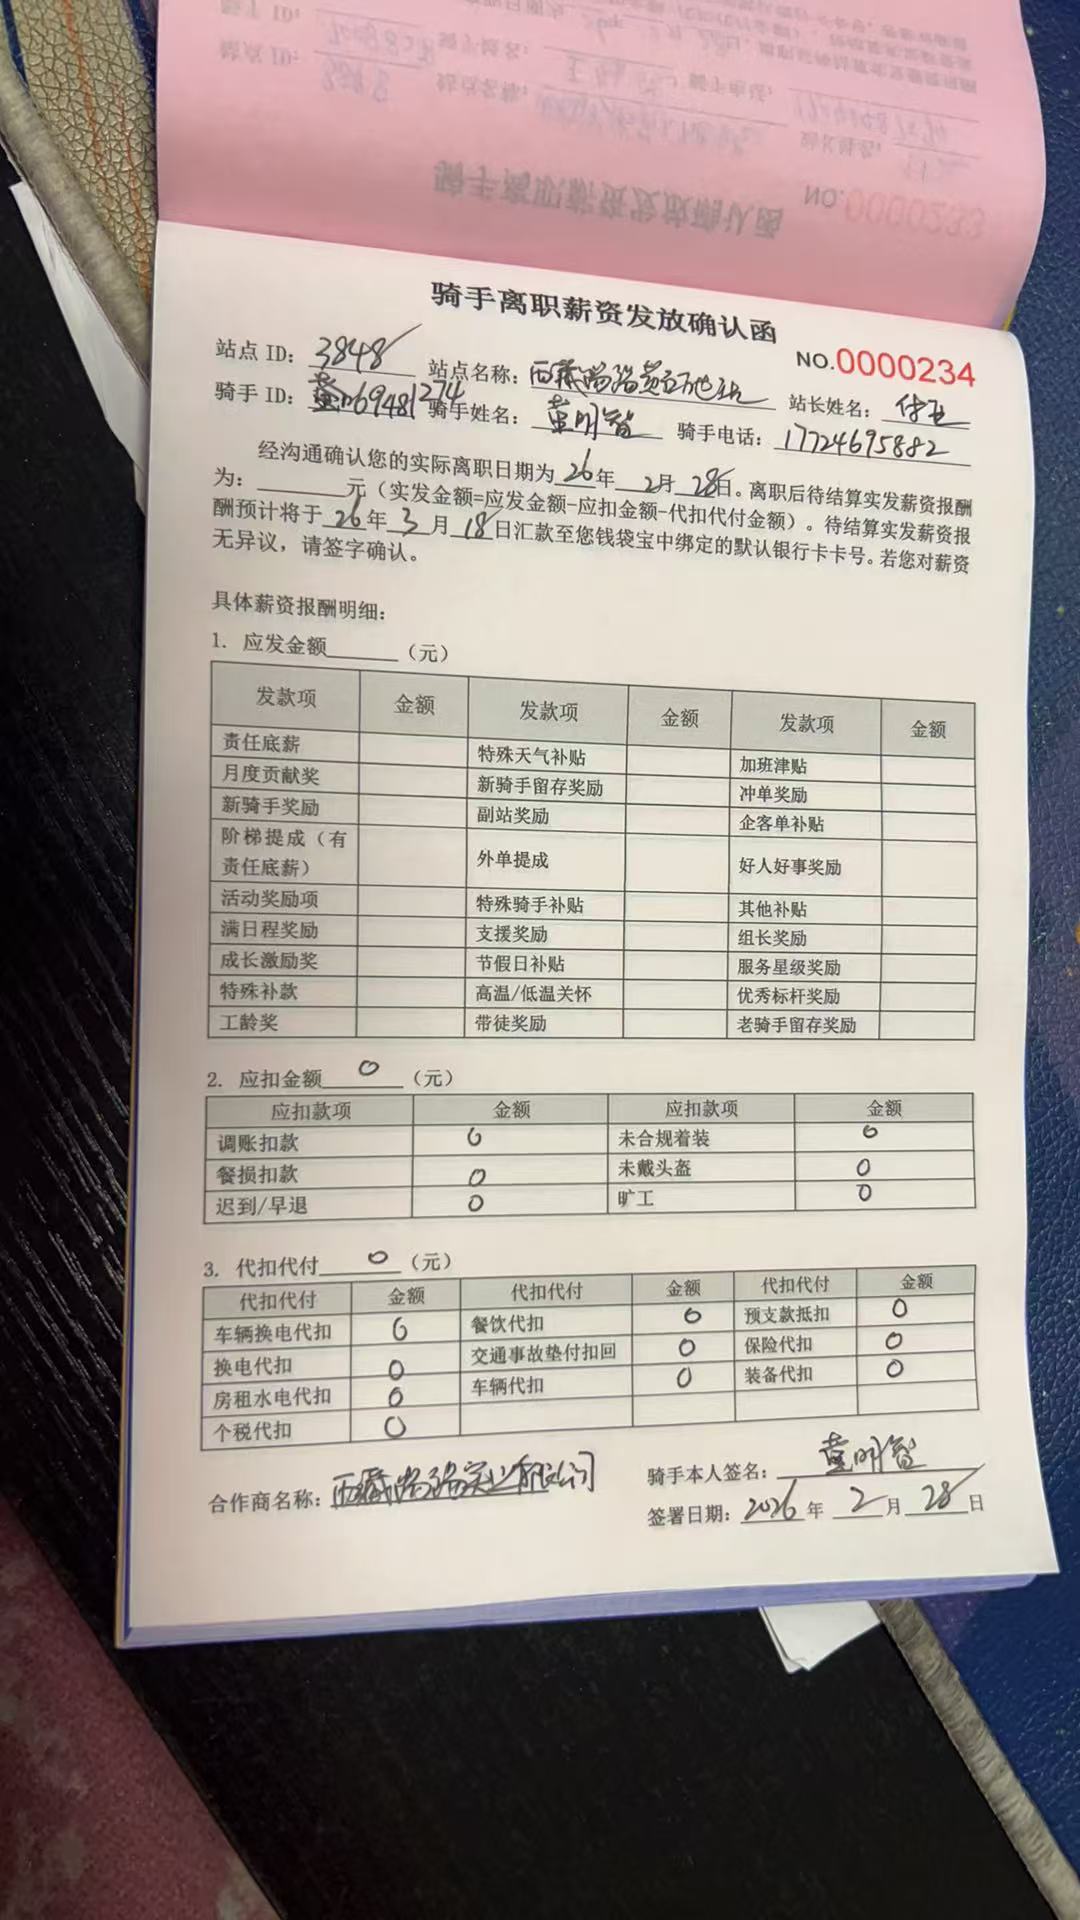 NO.0000233
骑手离职薪资发放确认函
骑手离职薪资发放确认函
NO.0000234
站点 ID: 3848 站点名称: 西藏 站 站长姓名:
骑手 ID: 69481274 骑手姓名: 董明智 骑手电话: 17724695882
经沟通确认您的实际离职日期为 26 年 2 月 28 日。离职后待结算实发薪资报酬
为: 元（实发金额=应发金额-应扣金额-代扣代付金额）。待结算实发薪资报
酬预计将于 26 年 3 月 18 日汇款至您钱袋宝中绑定的默认银行卡卡号。若您对薪资
无异议，请签字确认。
具体薪资报酬明细:
1. 应发金额 （元）
发款项 金额 发款项 金额 发款项 金额
责任底薪 特殊天气补贴 加班津贴
月度贡献奖 新骑手留存奖励 冲单奖励
新骑手奖励 副站奖励 企客单补贴
阶梯提成（有
责任底薪） 外单提成 好人好事奖励
活动奖励项 特殊骑手补贴 其他补贴
满日程奖励 支援奖励 组长奖励
成长激励奖 节假日补贴 服务星级奖励
特殊补款 高温/低温关怀 优秀标杆奖励
工龄奖 带徒奖励 老骑手留存奖励
2. 应扣金额 0 （元）
应扣款项 金额 应扣款项 金额
调账扣款 0 未合规着装 0
餐损扣款 0 未戴头盔 0
迟到/早退 0 旷工 0
3. 代扣代付 0 （元）
代扣代付 金额 代扣代付 金额 代扣代付 金额
车辆换电代扣 0 餐饮代扣 0 预支款抵扣 0
换电代扣 0 交通事故垫付扣回 0 保险代扣 0
房租水电代扣 0 车辆代扣 0 装备代扣 0
个税代扣 0
合作商名称: 西藏 实业有限公司 骑手本人签名: 董明智
签署日期: 2026 年 2 月 28 日